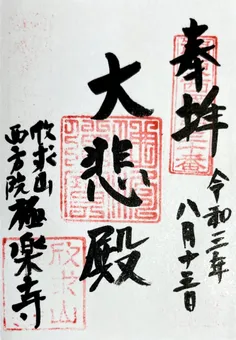 奉拝
令和三年
八月十三日
大悲殿
欣求山
西方院
極楽寺
欣求山